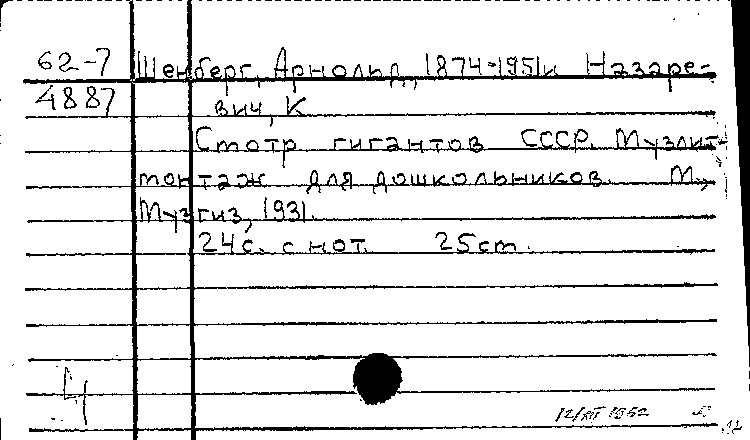 62-7 Шенберг, Арнольд, 1874-1951 и Назаре-
4887 вич, К
Смотр гигантов СССР. Музлит-
монтаж для дошкольников. М.,
Музгиз, 1931.
24с. с нот. 25cm.
4
12/XII 1962